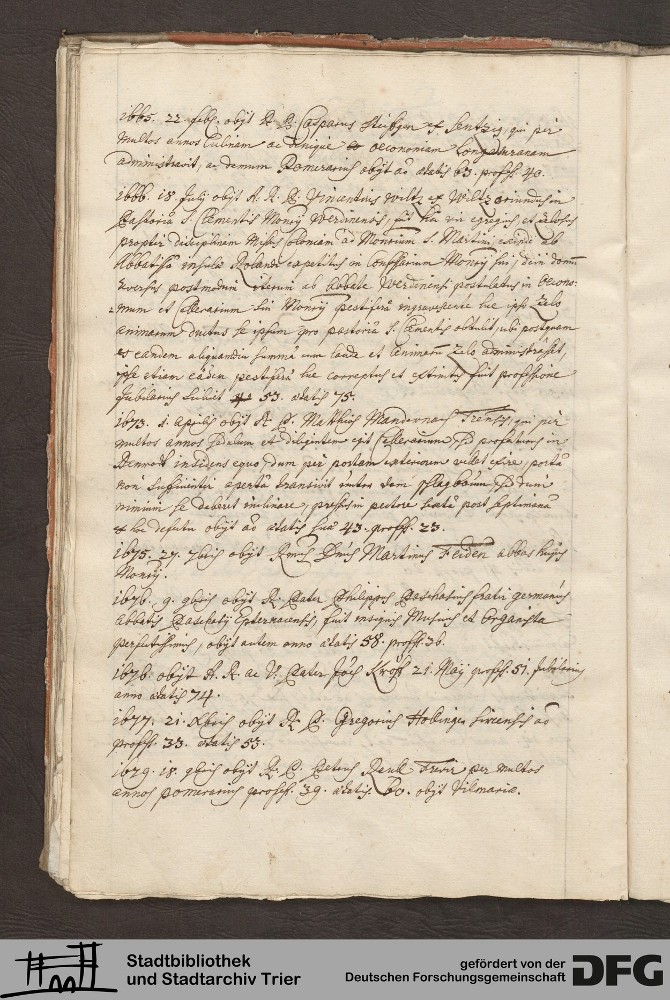 1665. 22. feb. obijt R. P. Casparus ex Sentzig, qui per
multos annos Culinam ac denique oeconomiam Longuuranam
administravit, ac demum Pomerarius obijt aõ ætatis 63. profess. 40.
1666. 18. Julij obijt A. R. P. Vincentius Wiltz ex Wiltz oriundus in
Pastoria S. Clementis Monrij Werdinensis, vir egregius, et zelosus
propter disciplinam Missus Coloniam ad Montrium S. Martini, exinde ab
Abbatissa insulæ Rolandi expetitus in Confessarium Monrij sui, dein domũ
reversus postmodum iterum ab Abbate Werdenensi postulatus in Oecono-
mum et Cellerarium sui Monrij pestifera ingravescente lue ipse zelo
animarum ductus se ipsum pro pastoria S. Clementis obtulit, ubi postquam
eandem aliquandiu summa cum laude et animarũ zelo administrasset,
ipse etiam eâdem pestiferâ lue correptus et extinctus fuit professione
Jubilarius fuit 53. ætatis 75.
1673. 1. Aprilis obijt R. P. Matthias Mandernach Trensis, qui per
multos annos sedulum et diligentem egit Cellerarium, sed profecturus in
Benrodt insidens equo, dum per portam exteriorem vellet exire, portâ
non sufficienter apertâ transivit sed dum
nimium se deberet inclinare, pressus in pectore statim post septimanã
ex hoc defectu obijt aõ ætatis suæ 43. profess. 23.
1675. 27. 7bris obijt Rmus Dnus Martinus Feiden abbas hujus
Monrij.
1676. 9. 9bris obijt R. Pater Philippus Paschasius frater germanus
Abbatis Paschasij Epternacensis, fuit insignis Musicus et Organista
perfectissimus, obijt autem anno ætatis 58. profess. 36.
1676. obijt A. R. ac V. Pater Joês 21. Maij profess. 51. Jubilarius
anno ætatis 74.
1677. 21. Xbris obijt R. P. Gregorius Holinger Circensis aõ
profess. 33. ætatis 53.
1679. 18. 9bris obijt R. P. Petrus Trevir per multos
annos pomerarius profess. 39. ætatis 60. obijt Vilmariæ.
Stadtbibliothek
und Stadtarchiv Trier
gefördert von der
Deutschen Forschungsgemeinschaft
DFG